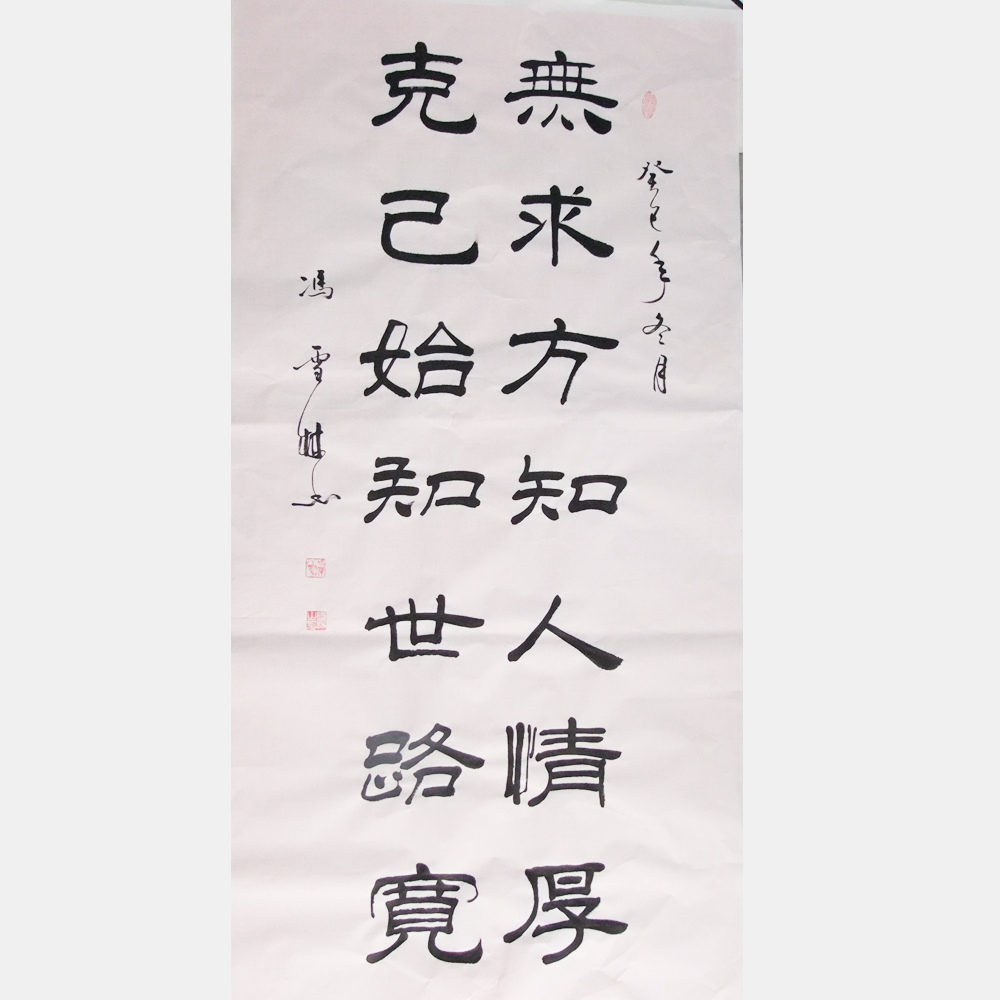 癸巳年冬月
無求方知人情厚
克己始知世路寬
馮雪林書